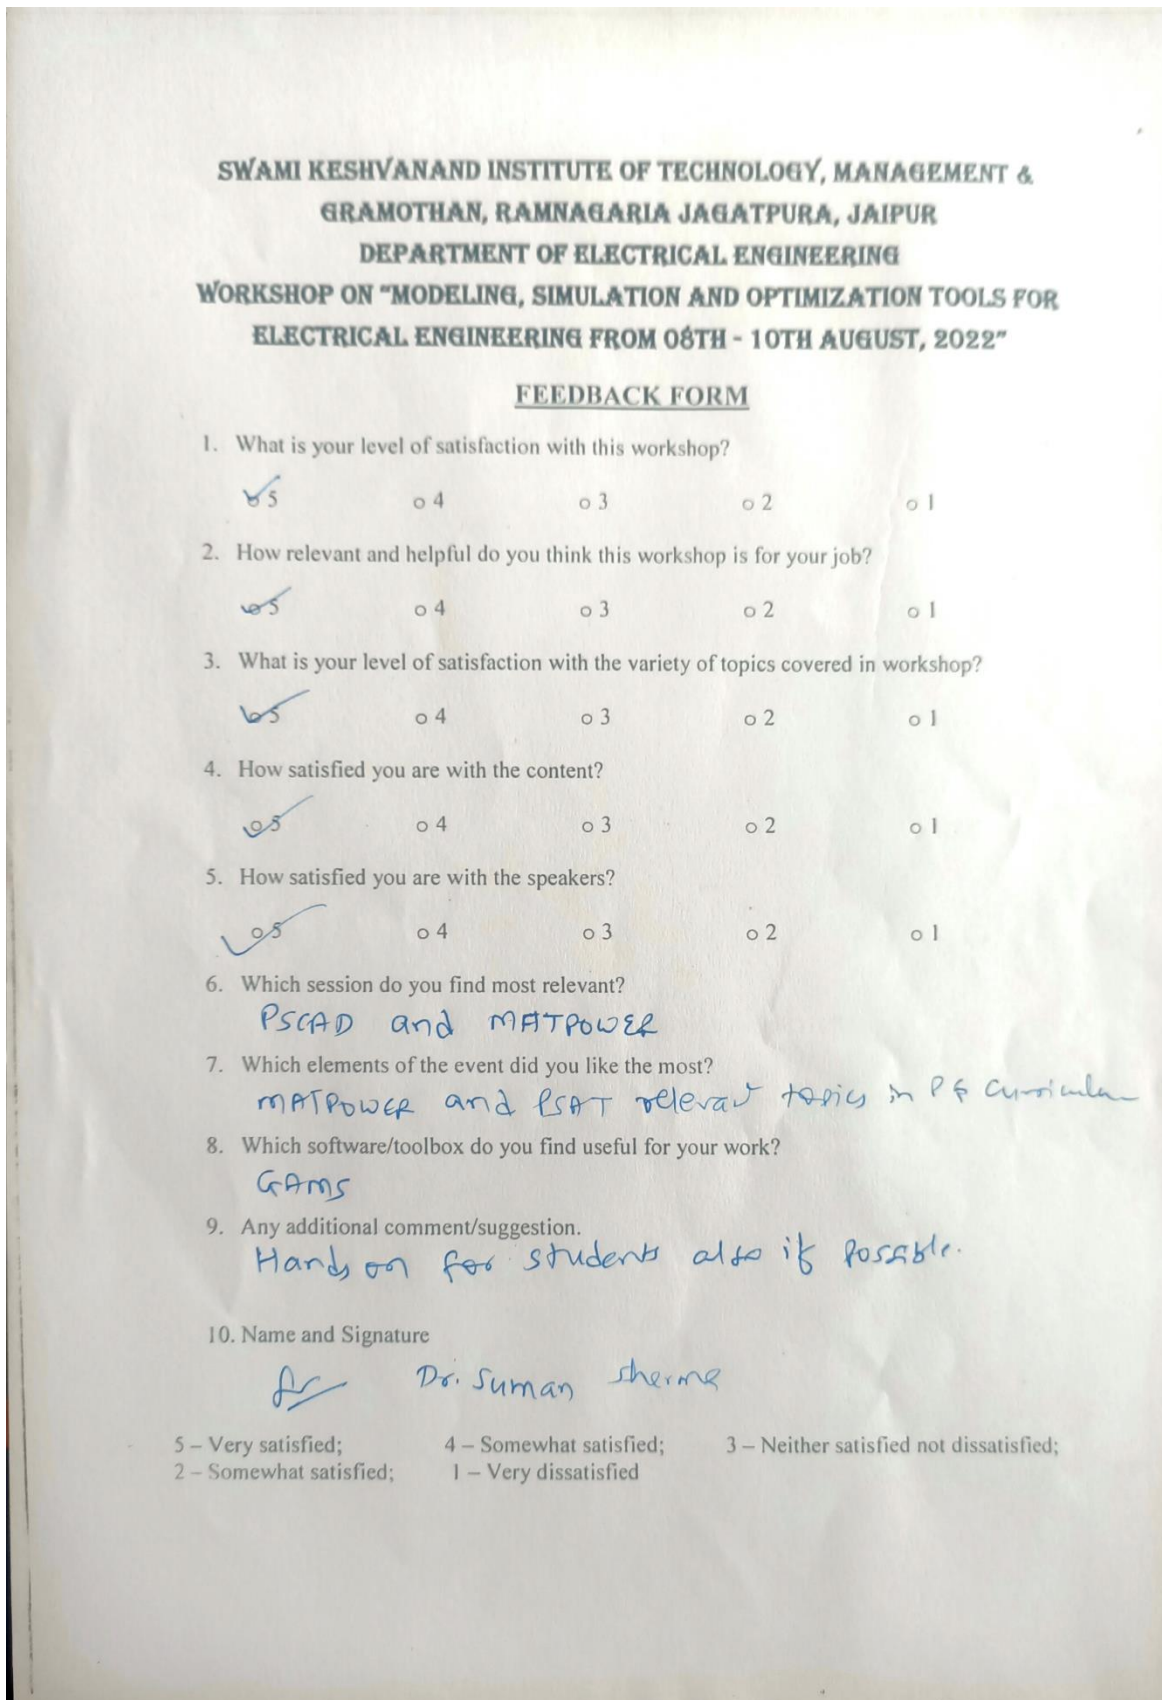 SWAMI KESHVANAND INSTITUTE OF TECHNOLOGY, MANAGEMENT &
GRAMOTHAN, RAMNAGARIA JAGATPURA, JAIPUR
DEPARTMENT OF ELECTRICAL ENGINEERING
WORKSHOP ON "MODELING, SIMULATION AND OPTIMIZATION TOOLS FOR
ELECTRICAL ENGINEERING FROM 08TH - 10TH AUGUST, 2022"
FEEDBACK FORM
1. What is your level of satisfaction with this workshop?
5 o 4 o 3 o 2 o 1
2. How relevant and helpful do you think this workshop is for your job?
o 5 o 4 o 3 o 2 o 1
3. What is your level of satisfaction with the variety of topics covered in workshop?
o 5 o 4 o 3 o 2 o 1
4. How satisfied you are with the content?
o 5 o 4 o 3 o 2 o 1
5. How satisfied you are with the speakers?
o 5 o 4 o 3 o 2 o 1
6. Which session do you find most relevant?
PSCAD and MATPOWER
7. Which elements of the event did you like the most?
MATPOWER and PSAT relevant topics in
8. Which software/toolbox do you find useful for your work?
GAMS
9. Any additional comment/suggestion.
Hands on for students also if possible.
10. Name and Signature
Dr. Suman Sharma
5 – Very satisfied; 4 – Somewhat satisfied; 3 – Neither satisfied not dissatisfied;
2 – Somewhat satisfied; 1 – Very dissatisfied